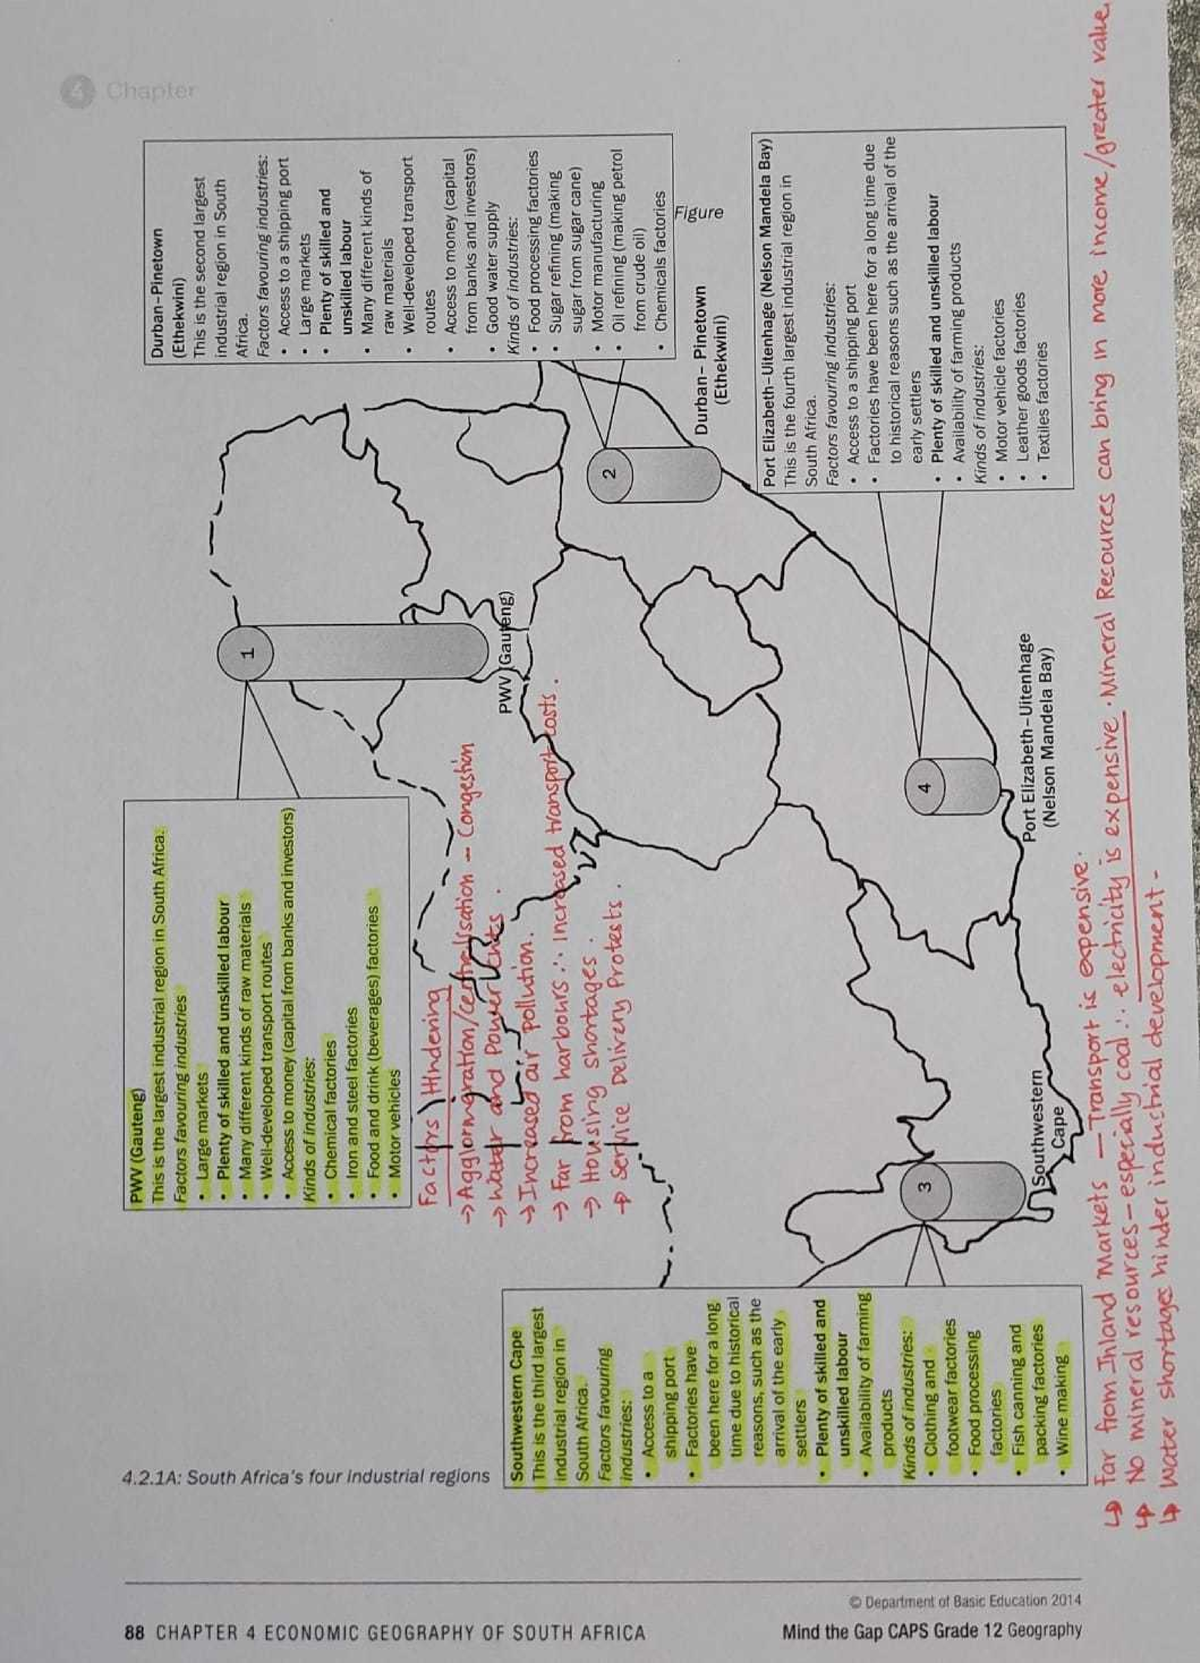 4 Chapter
Durban–Pinetown
(Ethekwini)
This is the second largest
industrial region in South
Africa.
Factors favouring industries:
• Access to a shipping port
• Large markets
• Plenty of skilled and
unskilled labour
• Many different kinds of
raw materials
• Well-developed transport
routes
• Access to money (capital
from banks and investors)
• Good water supply
Kinds of industries:
• Food processing factories
• Sugar refining (making
sugar from sugar cane)
• Motor manufacturing
• Oil refining (making petrol
from crude oil)
• Chemicals factories
Figure
4.2.1A: South Africa's four industrial regions
PWV (Gauteng)
This is the largest industrial region in South Africa.
Factors favouring industries
• Large markets
• Plenty of skilled and unskilled labour
• Many different kinds of raw materials
• Well-developed transport routes
• Access to money (capital from banks and investors)
Kinds of industries:
• Chemical factories
• Iron and steel factories
• Food and drink (beverages) factories
• Motor vehicles
Factors Hindering
→ Agglormgration/Centralisation – Congestion
→ Water and Power Cuts.
→ Increased air pollution.
→ Far from harbours ∴ Increased transport costs.
→ Housing shortages.
→ Service Delivery Protests.
1
PWV (Gauteng)
2
Durban–Pinetown
(Ethekwini)
3
Southwestern
Cape
4
Port Elizabeth–Uitenhage
(Nelson Mandela Bay)
Southwestern Cape
This is the third largest
industrial region in
South Africa.
Factors favouring
industries:
• Access to a
shipping port
• Factories have
been here for a long
time due to historical
reasons, such as the
arrival of the early
settlers
• Plenty of skilled and
unskilled labour
• Availability of farming
products
Kinds of industries:
• Clothing and
footwear factories
• Food processing
factories
• Fish canning and
packing factories
• Wine making
Port Elizabeth–Uitenhage (Nelson Mandela Bay)
This is the fourth largest industrial region in
South Africa.
Factors favouring industries:
• Access to a shipping port
• Factories have been here for a long time due
to historical reasons such as the arrival of the
early settlers
• Plenty of skilled and unskilled labour
• Availability of farming products
Kinds of industries:
• Motor vehicle factories
• Leather goods factories
• Textiles factories
↳ Far from Inland Markets — Transport is expensive.
↳ No mineral resources – especially coal ∴ electricity is expensive. Mineral Resources can bring in more income/greater value.
↳ Water shortages hinder industrial development.
88 CHAPTER 4 ECONOMIC GEOGRAPHY OF SOUTH AFRICA
© Department of Basic Education 2014
Mind the Gap CAPS Grade 12 Geography